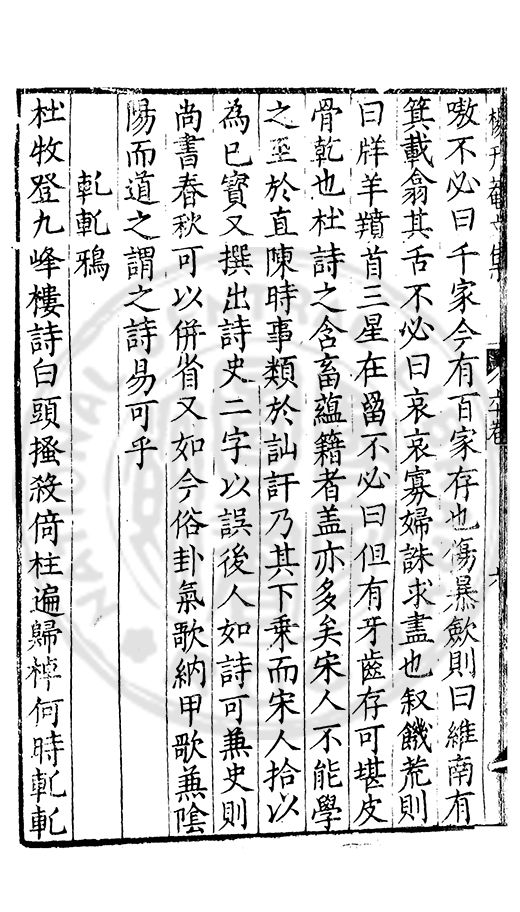 嗷不必曰千家今有百家存也傷暴歛則曰維南有
箕載翕其舌不必曰哀哀寡婦誅求盡也叙饑荒則
曰牂羊羵首三星在罶不必曰但有牙齒存可堪皮
骨乾也杜詩之含畜蘊籍者盖亦多矣宋人不能學
之至於直陳時事類於訕訐乃其下乗而宋人拾以
為已寳又撰出詩史二字以誤後人如詩可兼史則
尚書春秋可以併省又如今俗卦氣歌納甲歌兼隂
陽而道之謂之詩易可乎
軋軋鴉
杜牧登九峰樓詩白頭搔殺倚柱遍歸棹何時軋軋